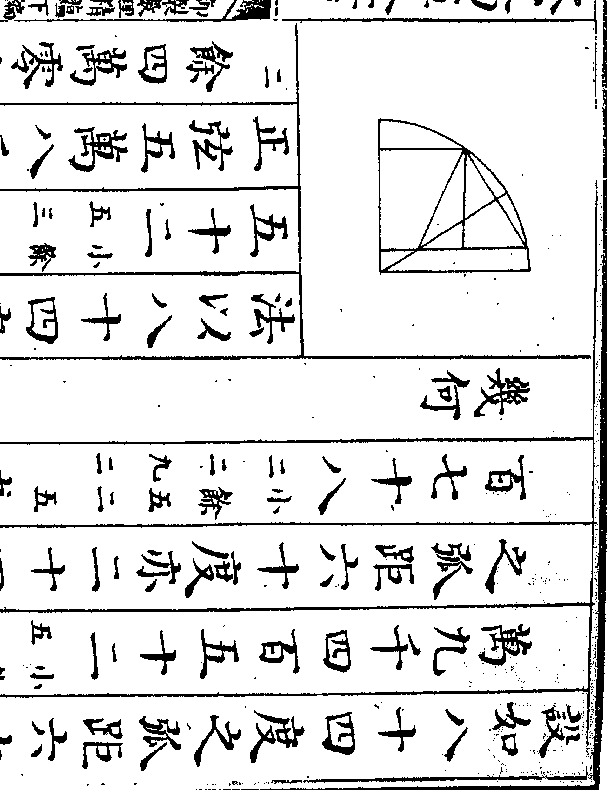 設如八十四度之弧距六
萬九千四百五十二小五
之弧距六十度亦二十四
百七十八小餘五二五二二九二
幾何
法以八十四
五十二小餘五三
正弦五萬八
二餘四萬零